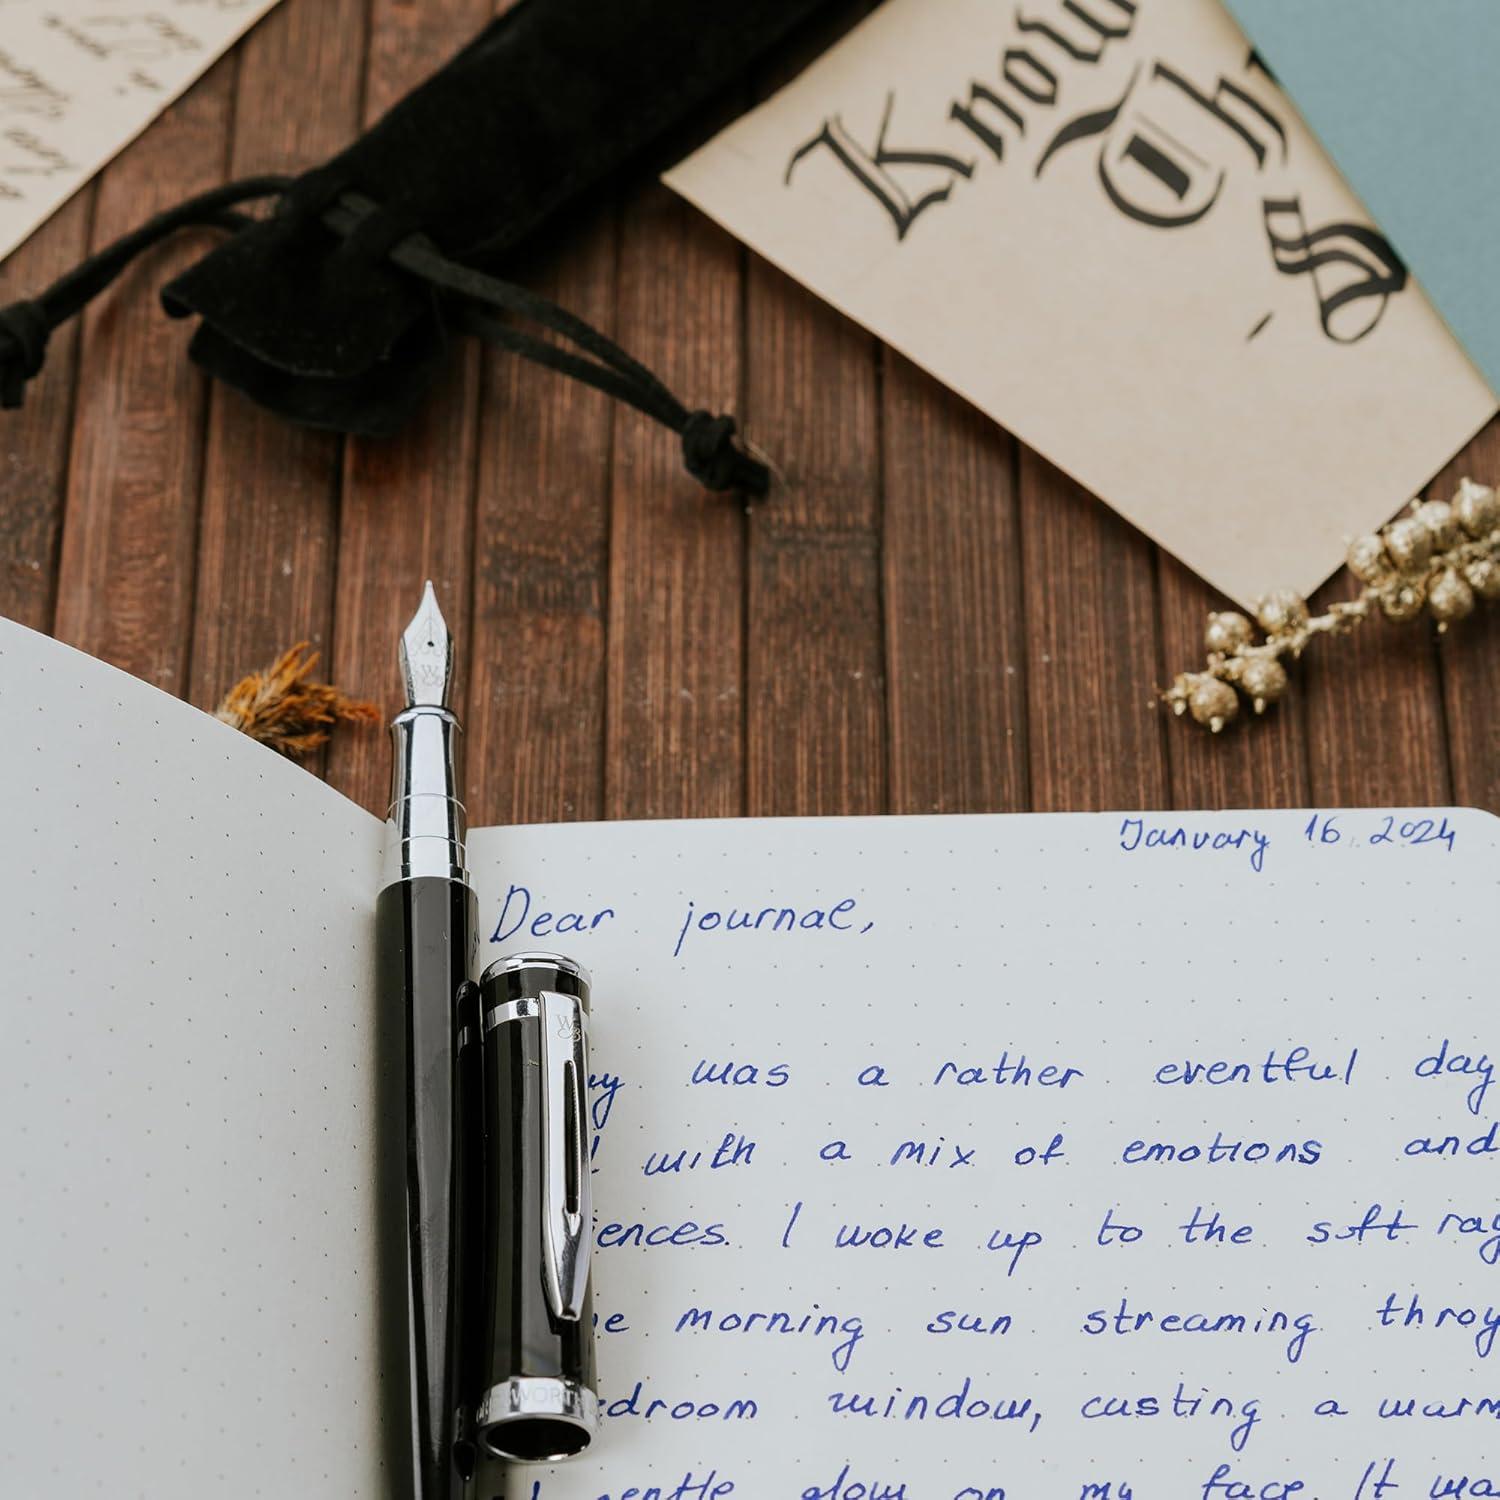 Know
Th
S
January 16, 2024
Dear journal,
was a rather eventful day
with a mix of emotions and
iences. I woke up to the soft ray
morning sun streaming throug
edroom window, casting a warm
gentle glow on my face. It wa
WORTH